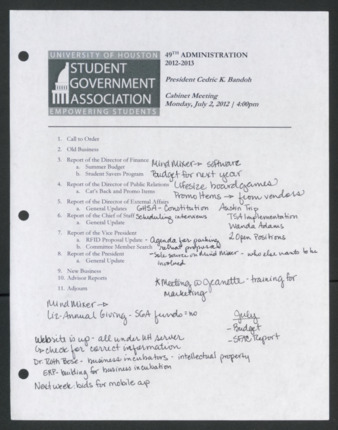 UNIVERSITY OF HOUSTON
STUDENT
GOVERNMENT
ASSOCIATION
EMPOWERING STUDENTS
49TH ADMINISTRATION
2012-2013
President Cedric K. Bandoh
Cabinet Meeting
Monday, July 2, 2012 | 4:00pm
1. Call to Order
2. Old Business
3. Report of the Director of Finance MindMixer → software
a. Summer Budget Budget for next year
b. Student Savers Program
4. Report of the Director of Public Relations Lifesize boardgames
a. Cat's Back and Promo Items Promo Items → from vendors
5. Report of the Director of External Affairs
a. General Updates GHSA - Constitution Austin Trip
6. Report of the Chief of Staff Scheduling interviews TSA Implementation
a. General Update Wanda Adams
7. Report of the Vice President 2 Open Positions
a. RFID Proposal Update - Agenda for parking
b. Committee Member Search robust proposal
8. Report of the President - take survey on Mind Mixer - who else wants to be
a. General Update involved
9. New Business
10. Advisor Reports * Meeting w Jeanette - training for
11. Adjourn Marketing
MindMixer →
Liz - Annual Giving - SGA fund = no July
- Budget
Website is up - all under UH server - SFAC Report
↳ check for correct information
Dr. Rath Bose - business incubators - intellectual property
ERP - building for business incubation
Next week: bids for mobile app